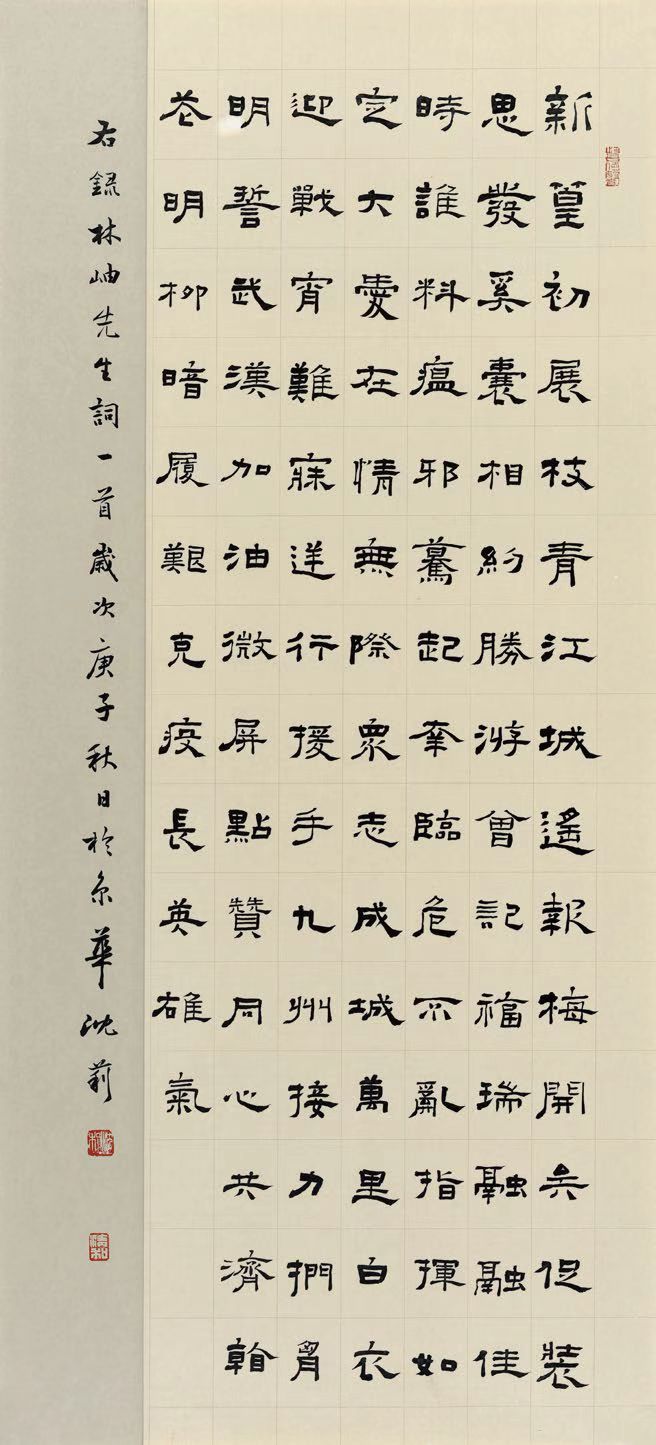 新篁初展枝青江城遙報梅開矣促裝
思發奚囊相約勝游曾記福瑞融融佳
時誰料瘟邪驀起幸臨危不亂指揮如
定大愛在情無際眾志成城萬里白衣
迎戰宵難寐逆行援手九州接力捫胷
明誓武漢加油微屏點贊同心共濟
花明柳暗履艱克疫長英雄氣
右錄林岫先生詞一首歲次庚子秋日於京華沈莉